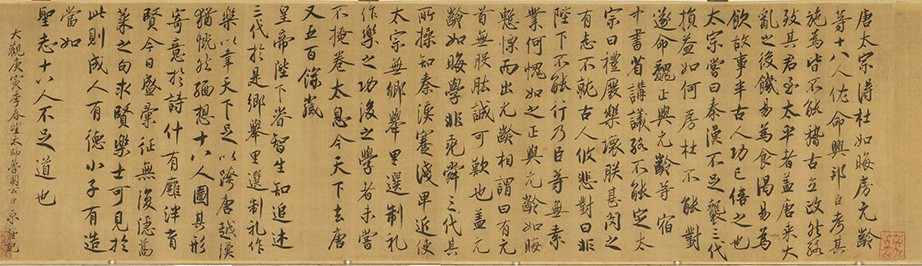 唐太宗得杜如晦房元齡
等十八人佐命興邦臣考其
施為皆不能稽古立政然終
致其君至太平者蓋唐承大
亂之後饑易為食渴易為
飲故事半古人功已倍之也
太宗嘗曰秦漢不足襲三代
損益如何房杜不能對
遂命魏正與元齡等宿
中書省講議終不能定太
宗曰禮廢樂壞朕甚閔之
有志不就古人攸悲對曰非
陛下不能行乃臣等無素
業何愧如之正與元齡如晦
慙慄而出元齡相謂曰有元
首無股肱誠可歎也蓋元
齡如晦學非堯舜三代其
所操如秦漢蹇淺卑近使
太宗無鄉舉里選制礼
作樂之功後之學者未嘗
不掩卷太息今天下去唐
又五百餘歲
皇帝陛下睿智生知追述
三代於是鄉舉里選制礼作
樂以幸天下足以跨唐越漢
猶慨然緬想十八人圖其形
寄意於詩什有廱泮育
賢今日盛彙征無復隱蒿
萊之句求賢樂士可見於
此則成人有德小子有造
當如
聖志十八人不足道也
大觀庚寅季春望太師魯國公臣京謹記